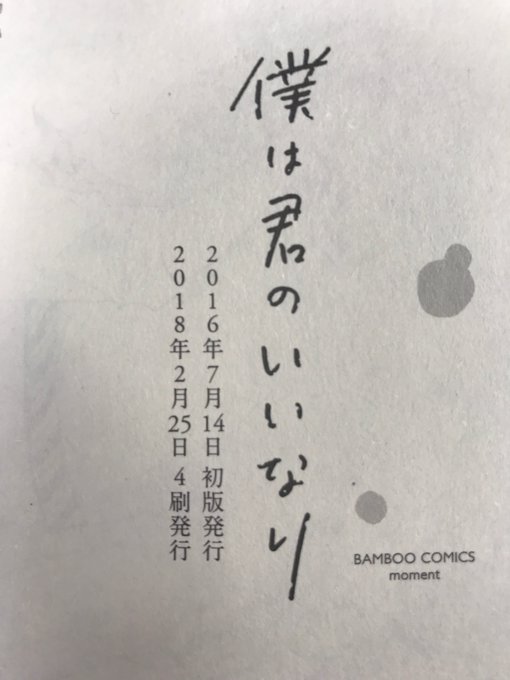 僕は君のいいなり
2016年7月14日 初版発行
2018年2月25日 4刷発行
BAMBOO COMICS
moment